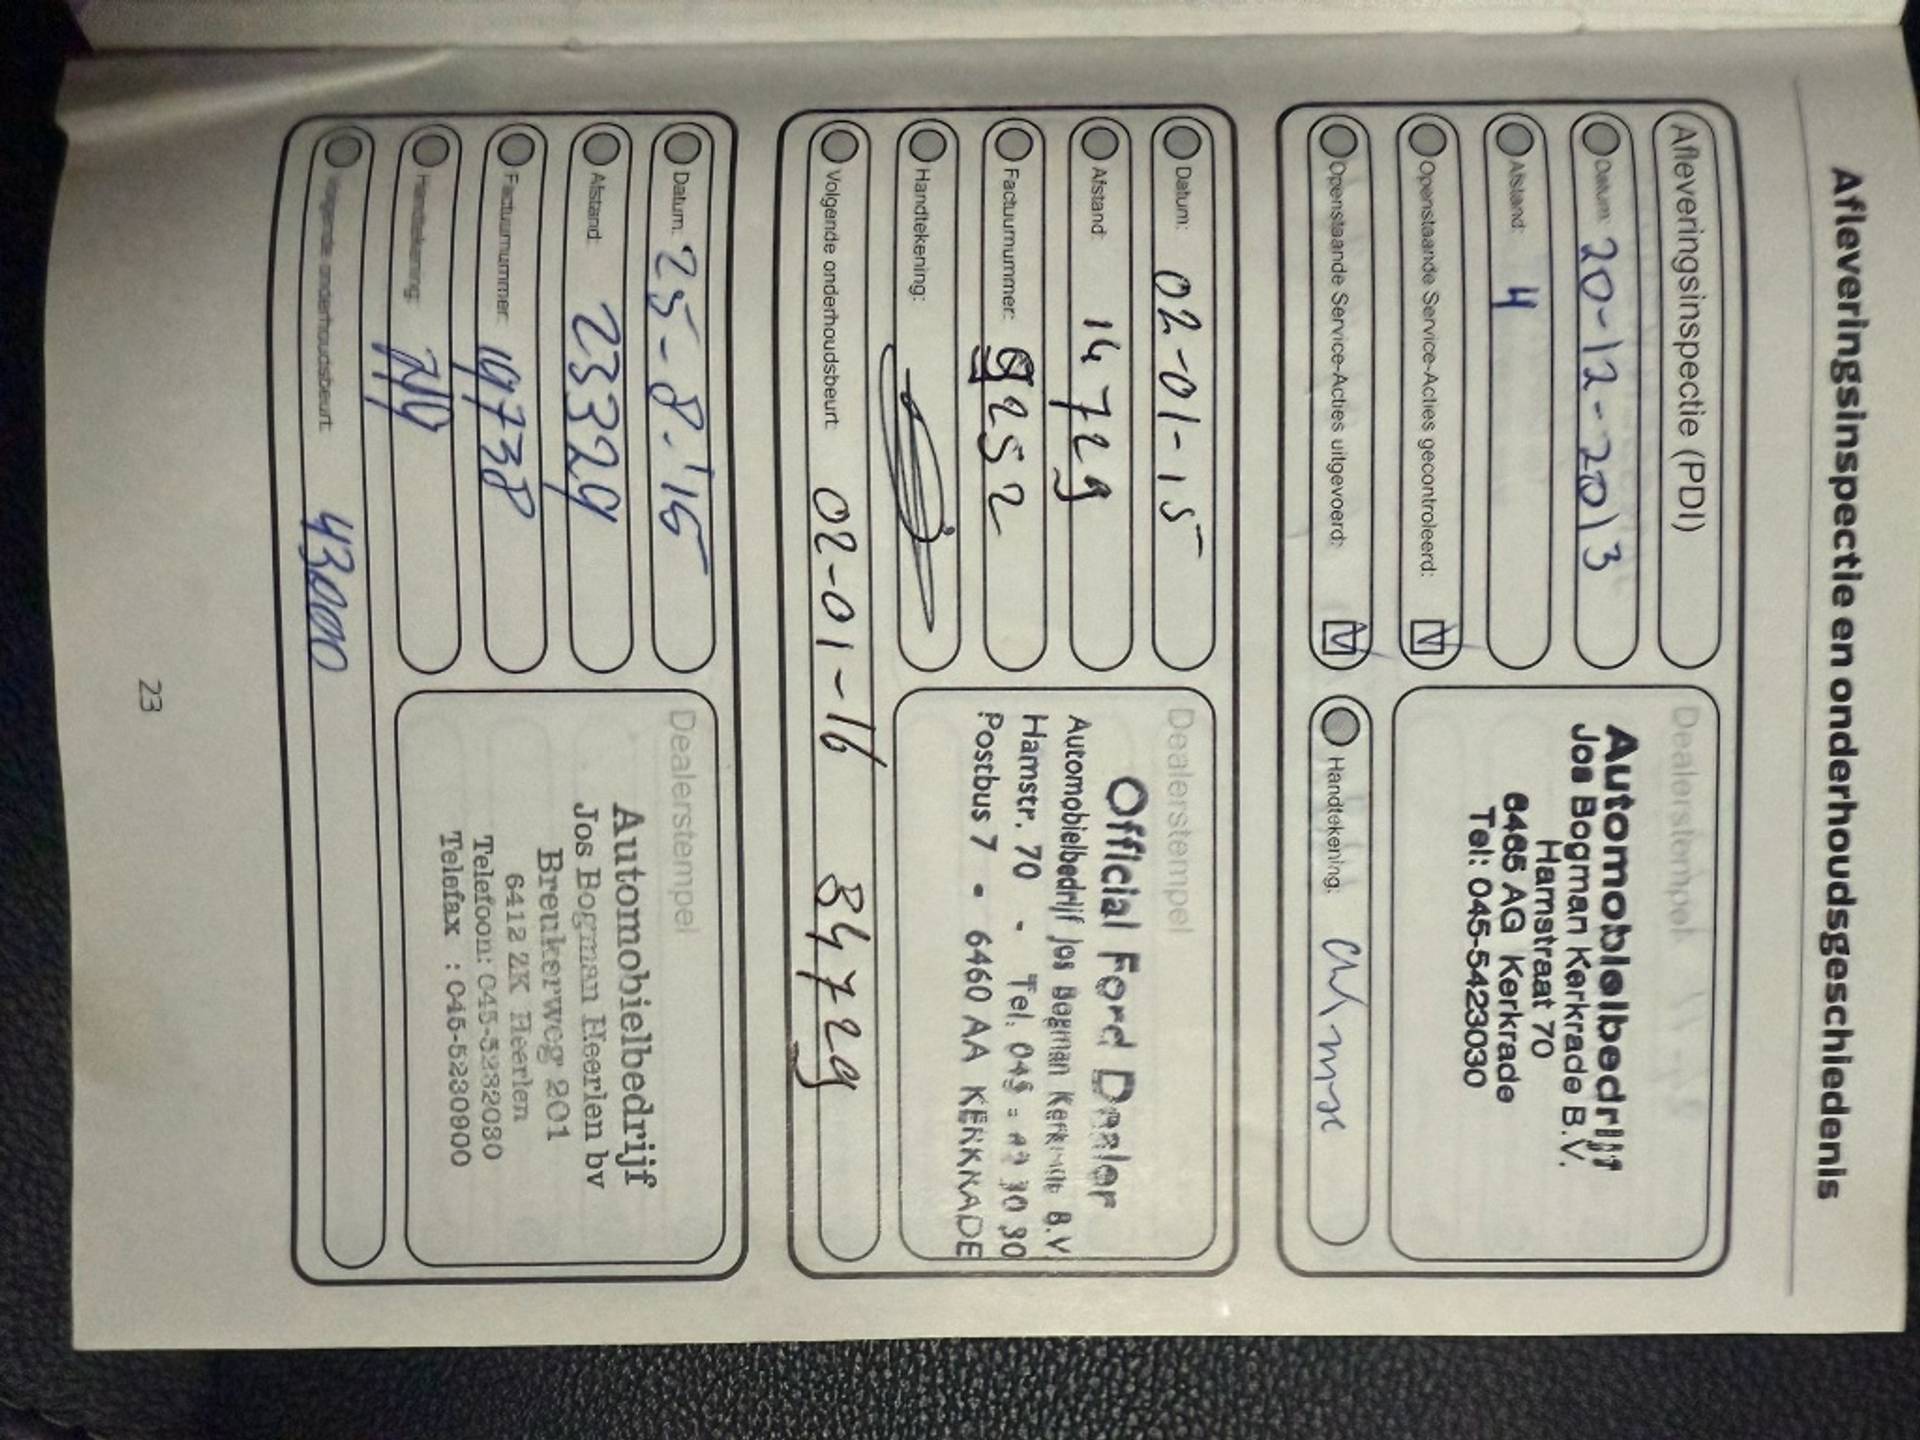 Afleveringsinspectie en onderhoudsgeschiedenis
Afleveringsinspectie (PDI)
Datum: 20-12-2013
Afstand: 4
Openstaande Service-Acties gecontroleerd:
Openstaande Service-Acties uitgevoerd:
Dealerstempel
Automobielbedrijf
Jos Bogman Kerkrade B.V.
Hamstraat 70
6465 AG Kerkrade
Tel: 045-5423030
Handtekening:
Datum: 02-01-15
Afstand: 14729
Factuurnummer: 9252
Handtekening:
Dealerstempel
Official Ford Dealer
Automobielbedrijf Jos Bogman Kerkrade B.V
Hamstr. 70 - Tel. 045
Postbus 7 - 6460 AA KERKRADE
Volgende onderhoudsbeurt: 02-01-16 34729
Datum: 25-8-'15
Afstand: 23329
Factuurnummer: 19738
Handtekening:
Dealerstempel
Automobielbedrijf
Jos Bogman Heerlen bv
Breukerweg 201
6412 ZK Heerlen
Telefoon: 045-5232030
Telefax : 045-5230900
Volgende onderhoudsbeurt: 43000
23